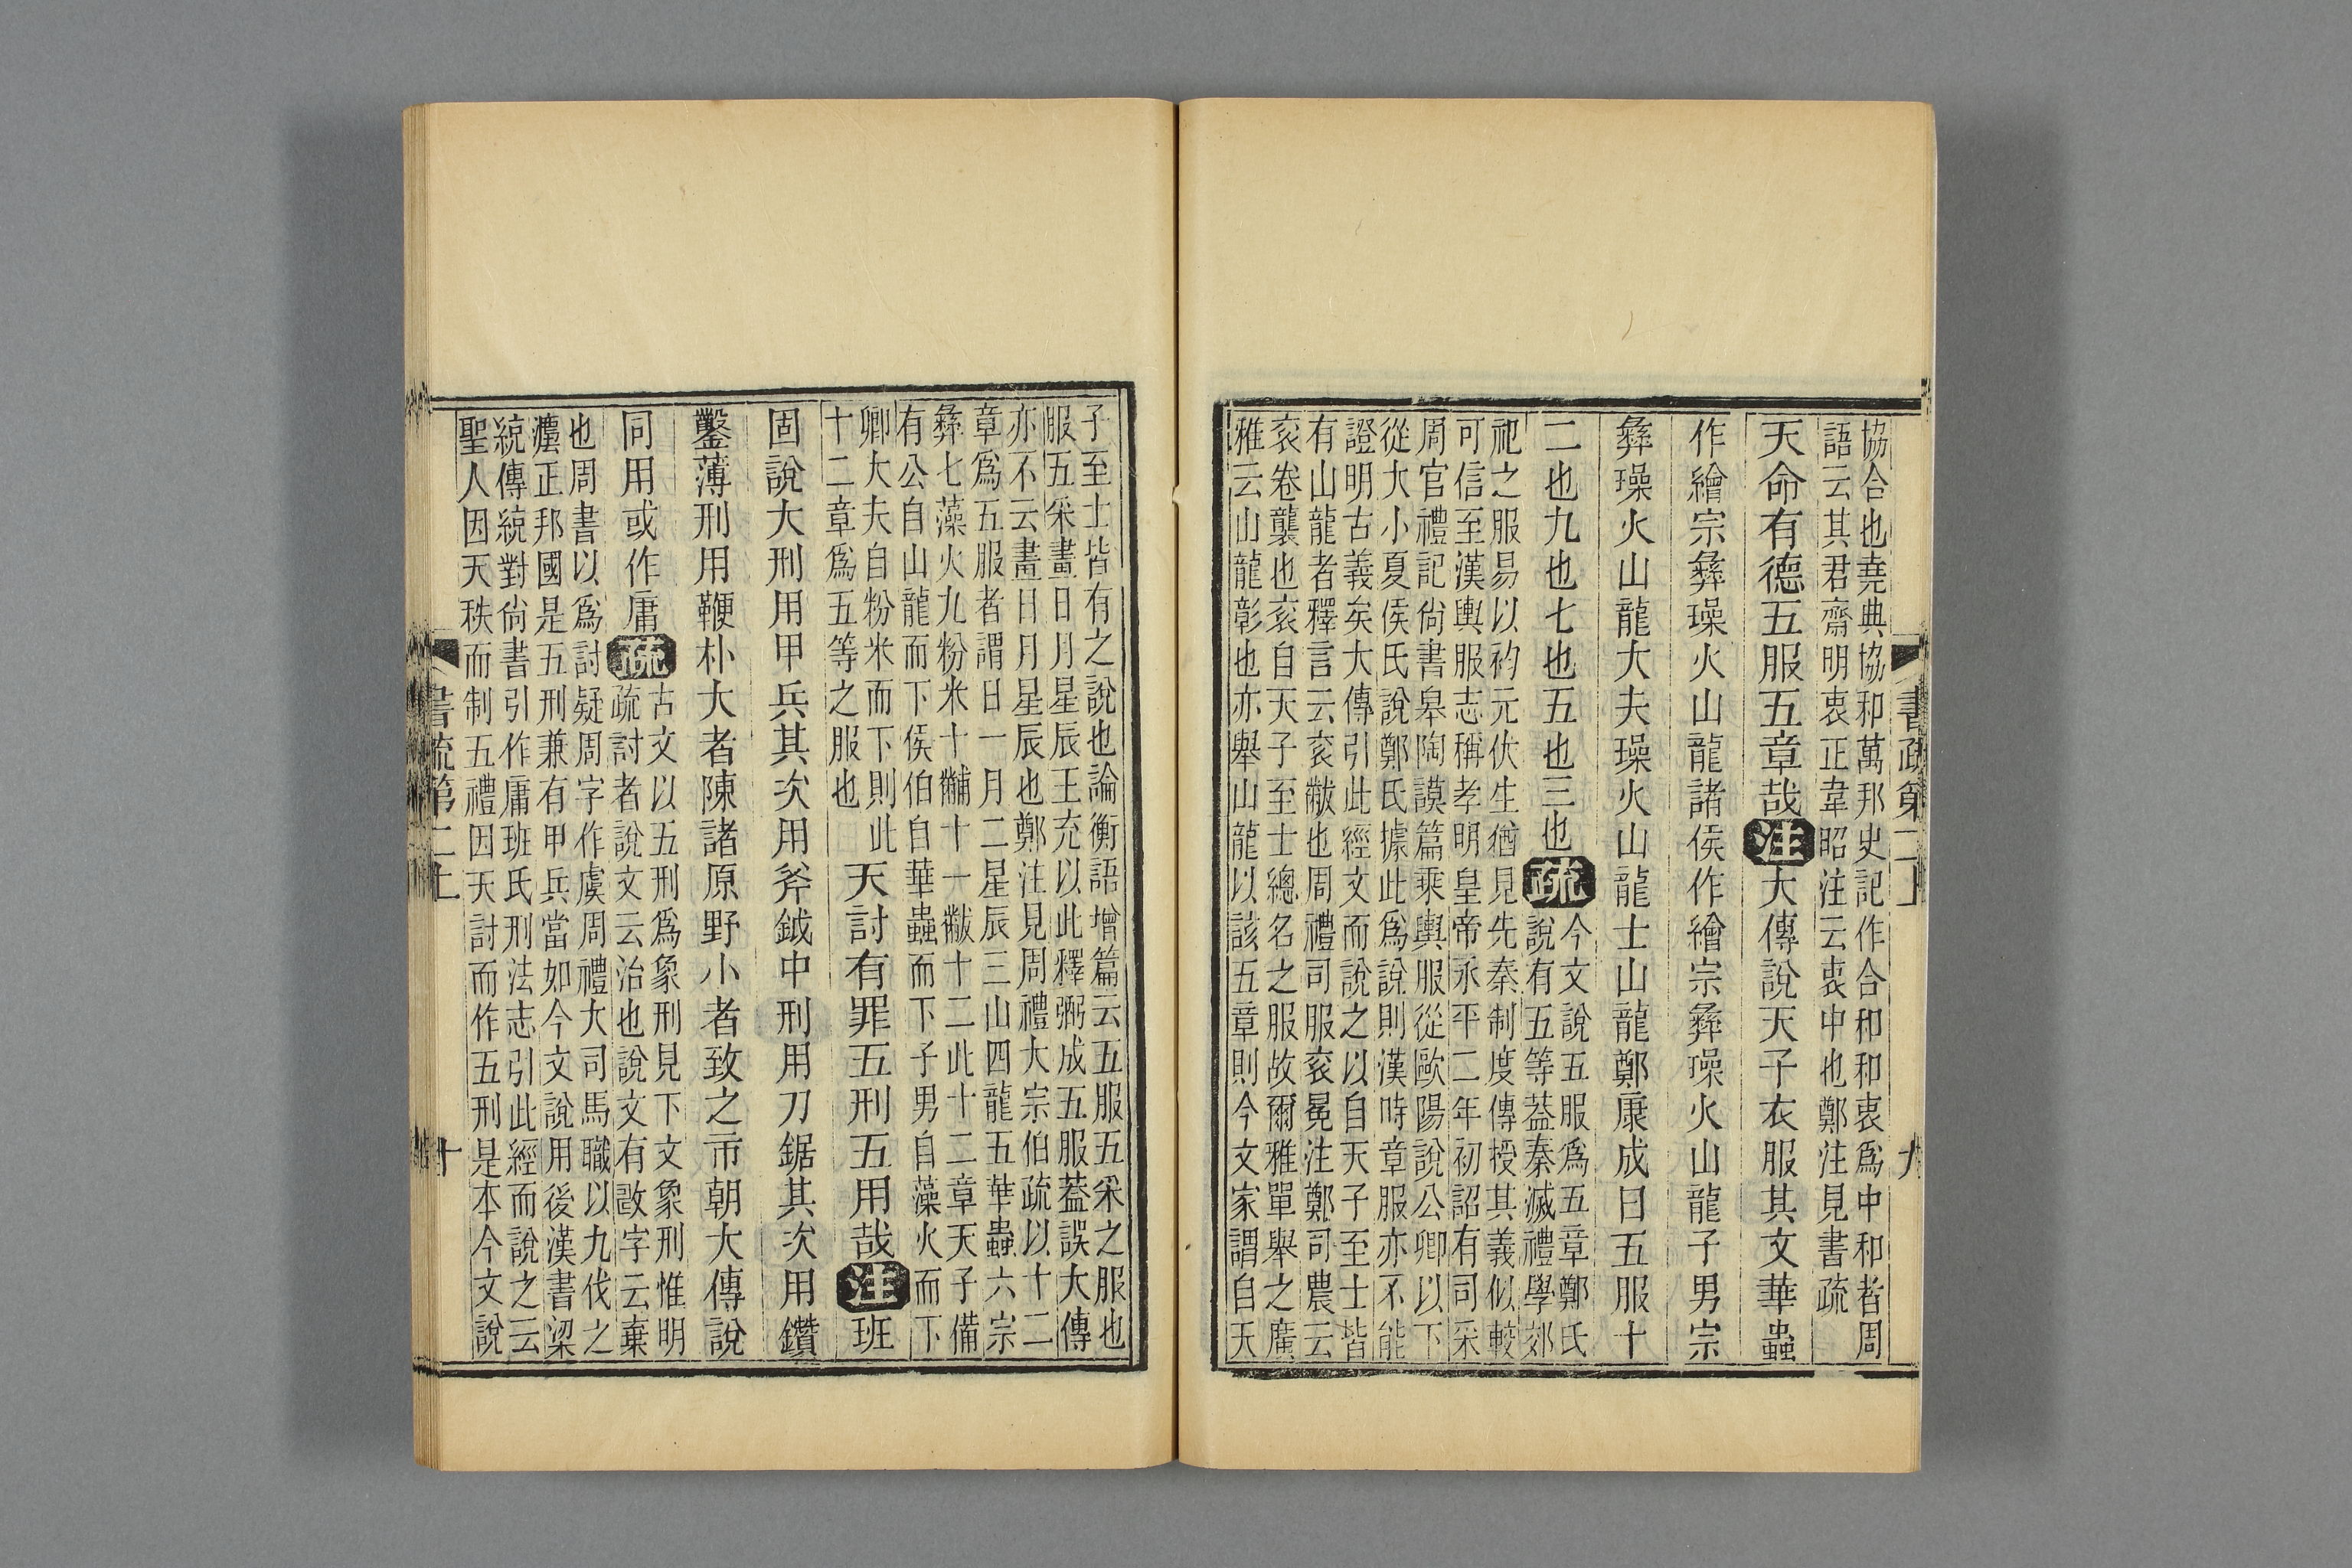 書疏第二上
九
協合也堯典協和萬邦史記作合和和衷爲中和者周
語云其君齋明衷正韋昭注云衷中也鄭注見書疏
天命有德五服五章哉注大傳說天子衣服其文華蟲
作繪宗彝璪火山龍諸侯作繪宗彝璪火山龍子男宗
彝璪火山龍大夫璪火山龍士山龍鄭康成曰五服十
二也九也七也五也三也疏
今文說五服爲五章鄭氏
說有五等葢秦滅禮學郊
祀之服易以袀元伏生猶見先秦制度傳授其義似較
可信至漢輿服志稱孝明皇帝永平二年初詔有司采
周官禮記尙書皋陶謨篇乘輿服從歐陽說公卿以下
從大小夏侯氏說鄭氏據此爲說則漢時章服亦不能
證明古義矣大傳引此經文而說之以自天子至士皆
有山龍者釋言云衮黻也周禮司服衮冕注鄭司農云
衮卷龑也衮自天子至士總名之服故爾雅單舉之廣
雅云山龍彰也亦舉山龍以該五章則今文家謂自天
子至士皆有之說也論衡語增篇云五服五采之服也
服五采畫日月星辰王充以此釋弼成五服葢誤大傳
亦不云畫日月星辰也鄭注見周禮大宗伯疏以十二
章爲五服者謂日一月二星辰三山四龍五華蟲六宗
彝七藻火九粉米十黼十一黻十二此十二章天子備
有公自山龍而下侯伯自華蟲而下子男自藻火而下
卿大夫自粉米而下則此
十二章爲五等之服也
天討有罪五刑五用哉注班
固說大刑用甲兵其次用斧鉞中刑用刀鋸其次用鑽
鑿薄刑用鞭朴大者陳諸原野小者致之市朝大傳說
同用或作庸疏
古文以五刑爲象刑見下文象刑惟明
疏討者說文云治也說文有敃字云棄
也周書以爲討疑周字作虞周禮大司馬職以九伐之
灋正邦國是五刑兼有甲兵當如今文說用後漢書梁
統傳統對尙書引作庸班氏刑法志引此經而說之云
聖人因天秩而制五禮因天討而作五刑是本今文說
書疏第二上
十